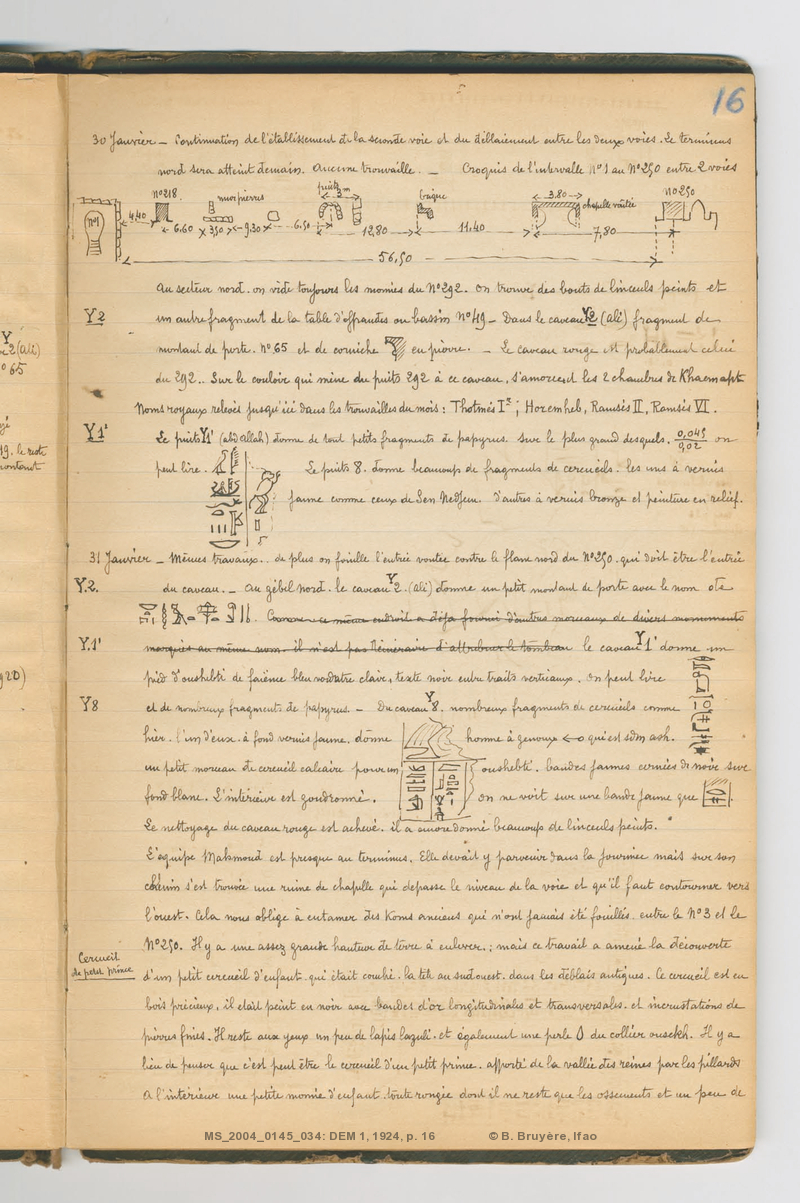 16
30 Janvier – Continuation de l'établissement de la seconde voie et du déblaiement entre les deux voies. Le terminus
nord sera atteint demain. Aucune trouvaille. – Croquis de l'intervalle N°1 au N°290 entre 2 voies
N°218 mur pierres puits 3m brique 3,80 chapelle voûtée N°290
N°1 4,40 6.60 3,50 9.30 6.50 12,80 11,40 7,80
56,50
Au secteur nord. on vide toujours les momies du N°292. on trouve des bouts de linceuls peints et
Y2 un autre fragment de la table d'offrandes ou bassin N°49 – Dans le caveau Y2 (Ali) fragment de
montant de porte. N°65 et de corniche en pierre. – Le caveau rouge est probablement celui
du 292.. Sur le couloir qui mène du puits 292 à ce caveau, s'amorcent les 2 chambres de Khaemapt
Noms royaux relevés jusqu'ici dans les trouvailles du mois : Thotmès Ier ; Horemheb, Ramsès II, Ramsès VI.
Y1' Le puits Y1' (abdallah) donne de tout petits fragments de papyrus. sur le plus grand desquels. 0,045 / 0,02 on
peut lire. Le puits 8. donne beaucoup de fragments de cercueils. les uns à vernis
jaune comme ceux de Sen Nedjem. d'autres à vernis bronze et peinture en relief.
31 Janvier – Mêmes travaux.. de plus on fouille l'entrée voutée contre le flanc nord du N°290. qui doit être l'entrée
Y.2. du caveau. – Au gébil nord. le caveau Y2. (Ali) donne un petit montant de porte avec le nom de
Comme ce même endroit a déja fourni d'autres morceaux de divers monuments
Y.1' marqués au même nom. il n'est pas téméraire d'attribuer le tombeau le caveau Y1' donne un
pied d'oushebti de faïence bleu verdatre claire, texte noir entre traits verticaux. On peut lire
Y8 et de nombreux fragments de papyrus. – Du caveau Y8. nombreux fragments de cercueils comme
hier. l'un d'eux. à fond vernis jaune. donne homme à genoux qui est sdm ash.
un petit morceau de cercueil calcaire pour un oushebti. bandes jaunes cernées de noir sur
fond blanc. L'intérieur est goudronné. On ne voit sur une bande jaune que
Le nettoyage du caveau rouge est achevé. il a encore donné beaucoup de linceuls peints.
L'equipe Mahmoud est presque au terminus. Elle devait y parvenir dans la journée mais sur son
chemin s'est trouvée une ruine de chapelle qui depasse le niveau de la voie et qu'il faut contourner vers
l'ouest. Cela nous oblige à entamer des Koms anciens qui n'ont jamais été fouillés entre le N°3 et le
N°290. Il y a une assez grande hauteur de terre à enlever. ; mais ce travail a amené la découverte
Cercueil de petit prince
d'un petit cercueil d'enfant qui était couché. la tête au sud ouest. dans les déblais antiques. le cercueil est en
bois précieux, il était peint en noir avec bandes d'or longitudinales et transversales. et incrustations de
pierres fines. Il reste aux yeux un peu de lapis lazuli. et également une perle du collier ousekh. Il y a
lieu de penser que c'est peut être le cercueil d'un petit prince. apporté de la vallée des reines par les pillards
A l'intérieur une petite momie d'enfant toute rongée dont il ne reste que les ossements et un peu de
MS_2004_0145_034: DEM 1, 1924, p. 16 © B. Bruyère, Ifao